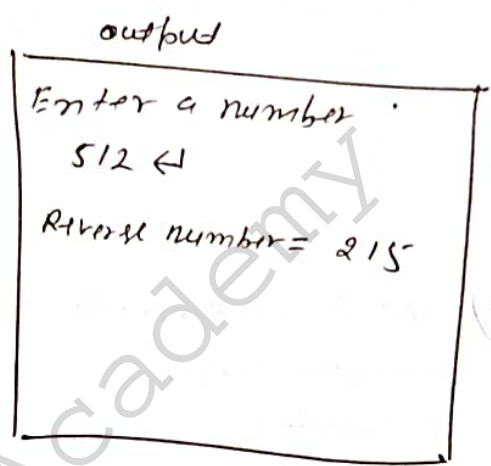 output
Enter a number
512 ↵
Reverse number = 215
Academy